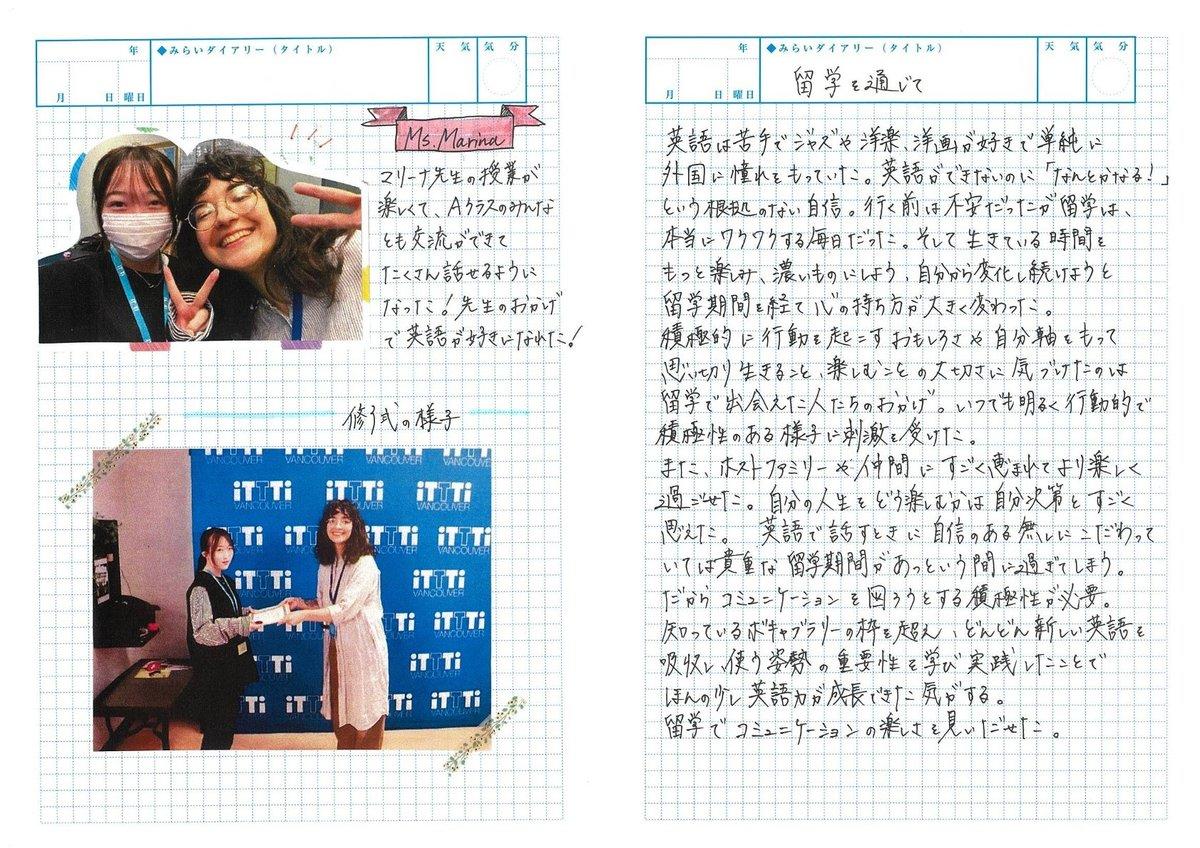 年
◆みらいダイアリー（タイトル）
天 気
気 分
月 日 曜日
Ms.Marina
マリーナ先生の授業が
楽しくて、Aクラスのみんな
とも交流ができて
たくさん話せるように
なった！先生のおかげ
で英語が好きになれた！
修了式の様子
iTTTi
VANCOUVER
iTTTi
VANCOUVER
iTTTi
VANCOUVER
年
◆みらいダイアリー（タイトル）
天 気
気 分
月 日 曜日
留学を通じて
英語は苦手でジャズや洋楽、洋画が好きで単純に
外国に憧れをもっていた。英語ができないのに「なんとかなる！」
という根拠のない自信。行く前は不安だったが留学は、
本当にワクワクする毎日だった。そして生きている時間を
もっと楽しみ、濃いものにしよう、自分から変化し続けようと
留学期間を経て心の持ち方が大きく変わった。
積極的に行動を起こすおもしろさや自分軸をもって
思い切り生きること、楽しむことの大切さに気づけたのは
留学で出会えた人たちのおかげ。いつでも明るく行動的で
積極性のある様子に刺激を受けた。
また、ホストファミリーや仲間にすごく恵まれてより楽しく
過ごせた。自分の人生をどう楽しむかは自分次第とすごく
思えた。 英語で話すときに自信のある無しにこだわって
いては貴重な留学期間があっという間に過ぎてしまう。
だからコミュニケーションを図ろうとする積極性が必要。
知っているボキャブラリーの枠を超え、どんどん新しい英語を
吸収し使う姿勢の重要性を学び実践したことで
ほんの少し英語力が成長できた気がする。
留学でコミュニケーションの楽しさを見いだせた。